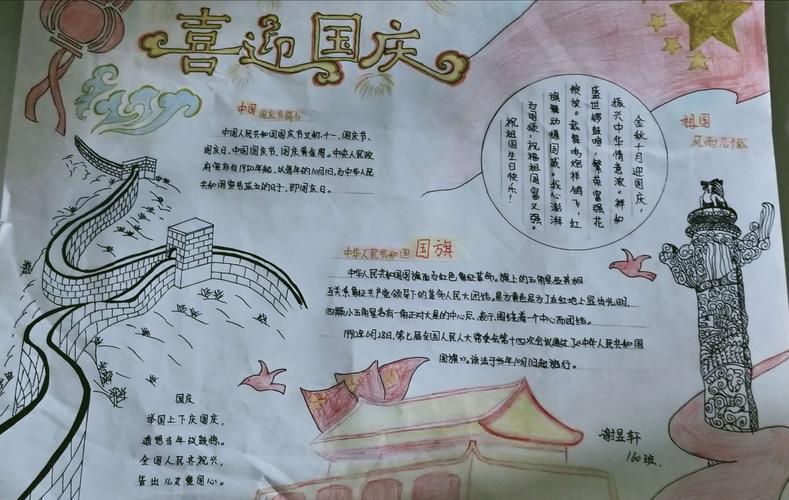 喜迎国庆
中国国庆节简介
中国人民共和国国庆节又称十一、国庆节、
国庆日、中国国庆节、国庆黄金周。中央人民政
府宣布自1950年起，以每年的10月1日，为中华人民
共和国宣告成立的日子，即国庆日。
金秋十月迎国庆，
振兴中华情意浓。祥和
盛世锣鼓喧，繁荣富强花
绽放。载舞鸣炮祥鸽飞，红
旗飘动爆国威。我心澎湃
为国颂，祝福祖国富又强。
祝祖国生日快乐！
祖国
风雨九十载
中华人民共和国 国旗
中华人民共和国国旗面为红色象征革命。旗上的五角星及其相
互关系象征共产党领导下的革命人民大团结。星为黄色是为了在红地上显出光明，
四颗小五角星各有一角正对大星的中心点，表示围绕着一个中心而团结。
1990年6月28日，第七届全国人民人大常委会第十四次会议通过了《中华人民共和国
国旗》。该法于当年10月1日起施行。
国庆
举国上下庆国庆，
遥想当年以鼓
全国人民齐祝兴，
皆出儿女爱国心。
谢昱轩
160班.